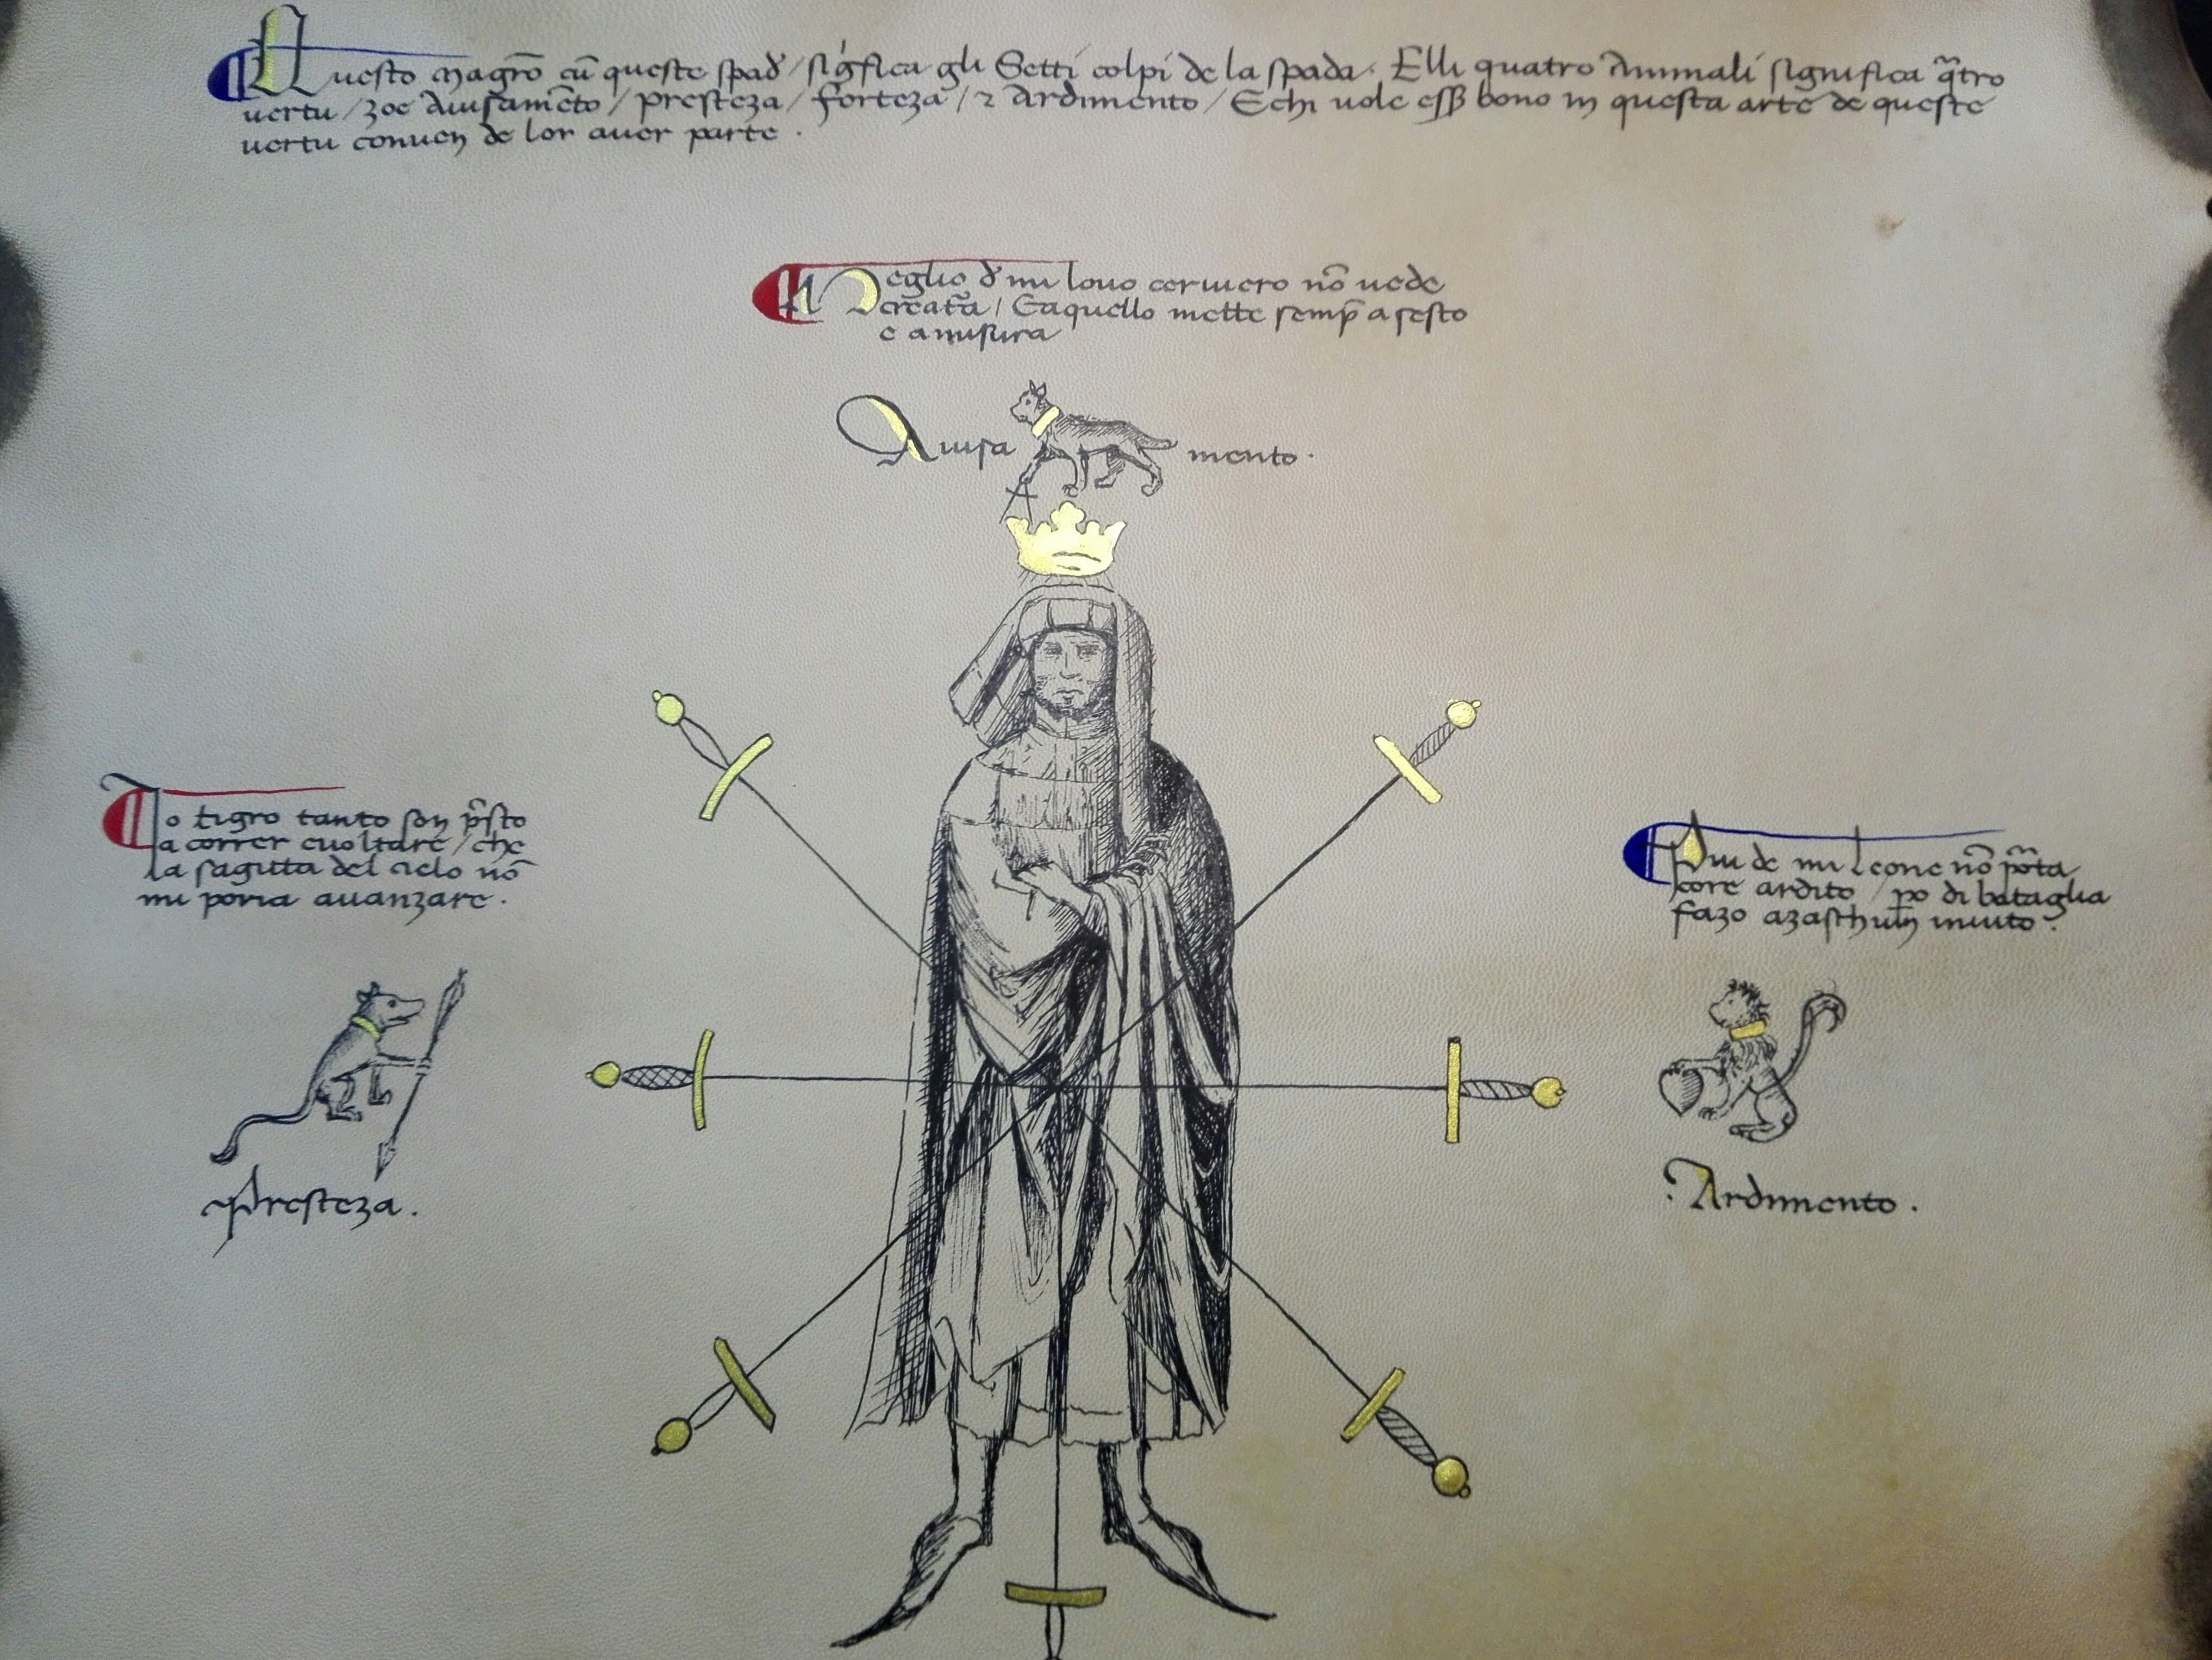 Questo magr̄o cū queste spad' / sigfica gli Setti colpi de la spada. Elli quatro Animali significa q̄tro
vertu / zoe Auisamēto / presteza / forteza / 2 Ardimento / Echi uole eſſ bono in questa arte de queste
vertu conuen de lor auer parte .
Meglio d' mi louo ceruiero nō uede
creatā / Eaquello mette semp̄ a sesto
e a misura
Auisa mento .
Io tigro tanto son p̄sto
a correr e uoltare / che
la sagitta del cielo nō
mi poria auanzare .
Presteza .
Piu de mi Leone nō porta
core ardito / po di bataglia
fazo azaschun inuito .
Ardimento .